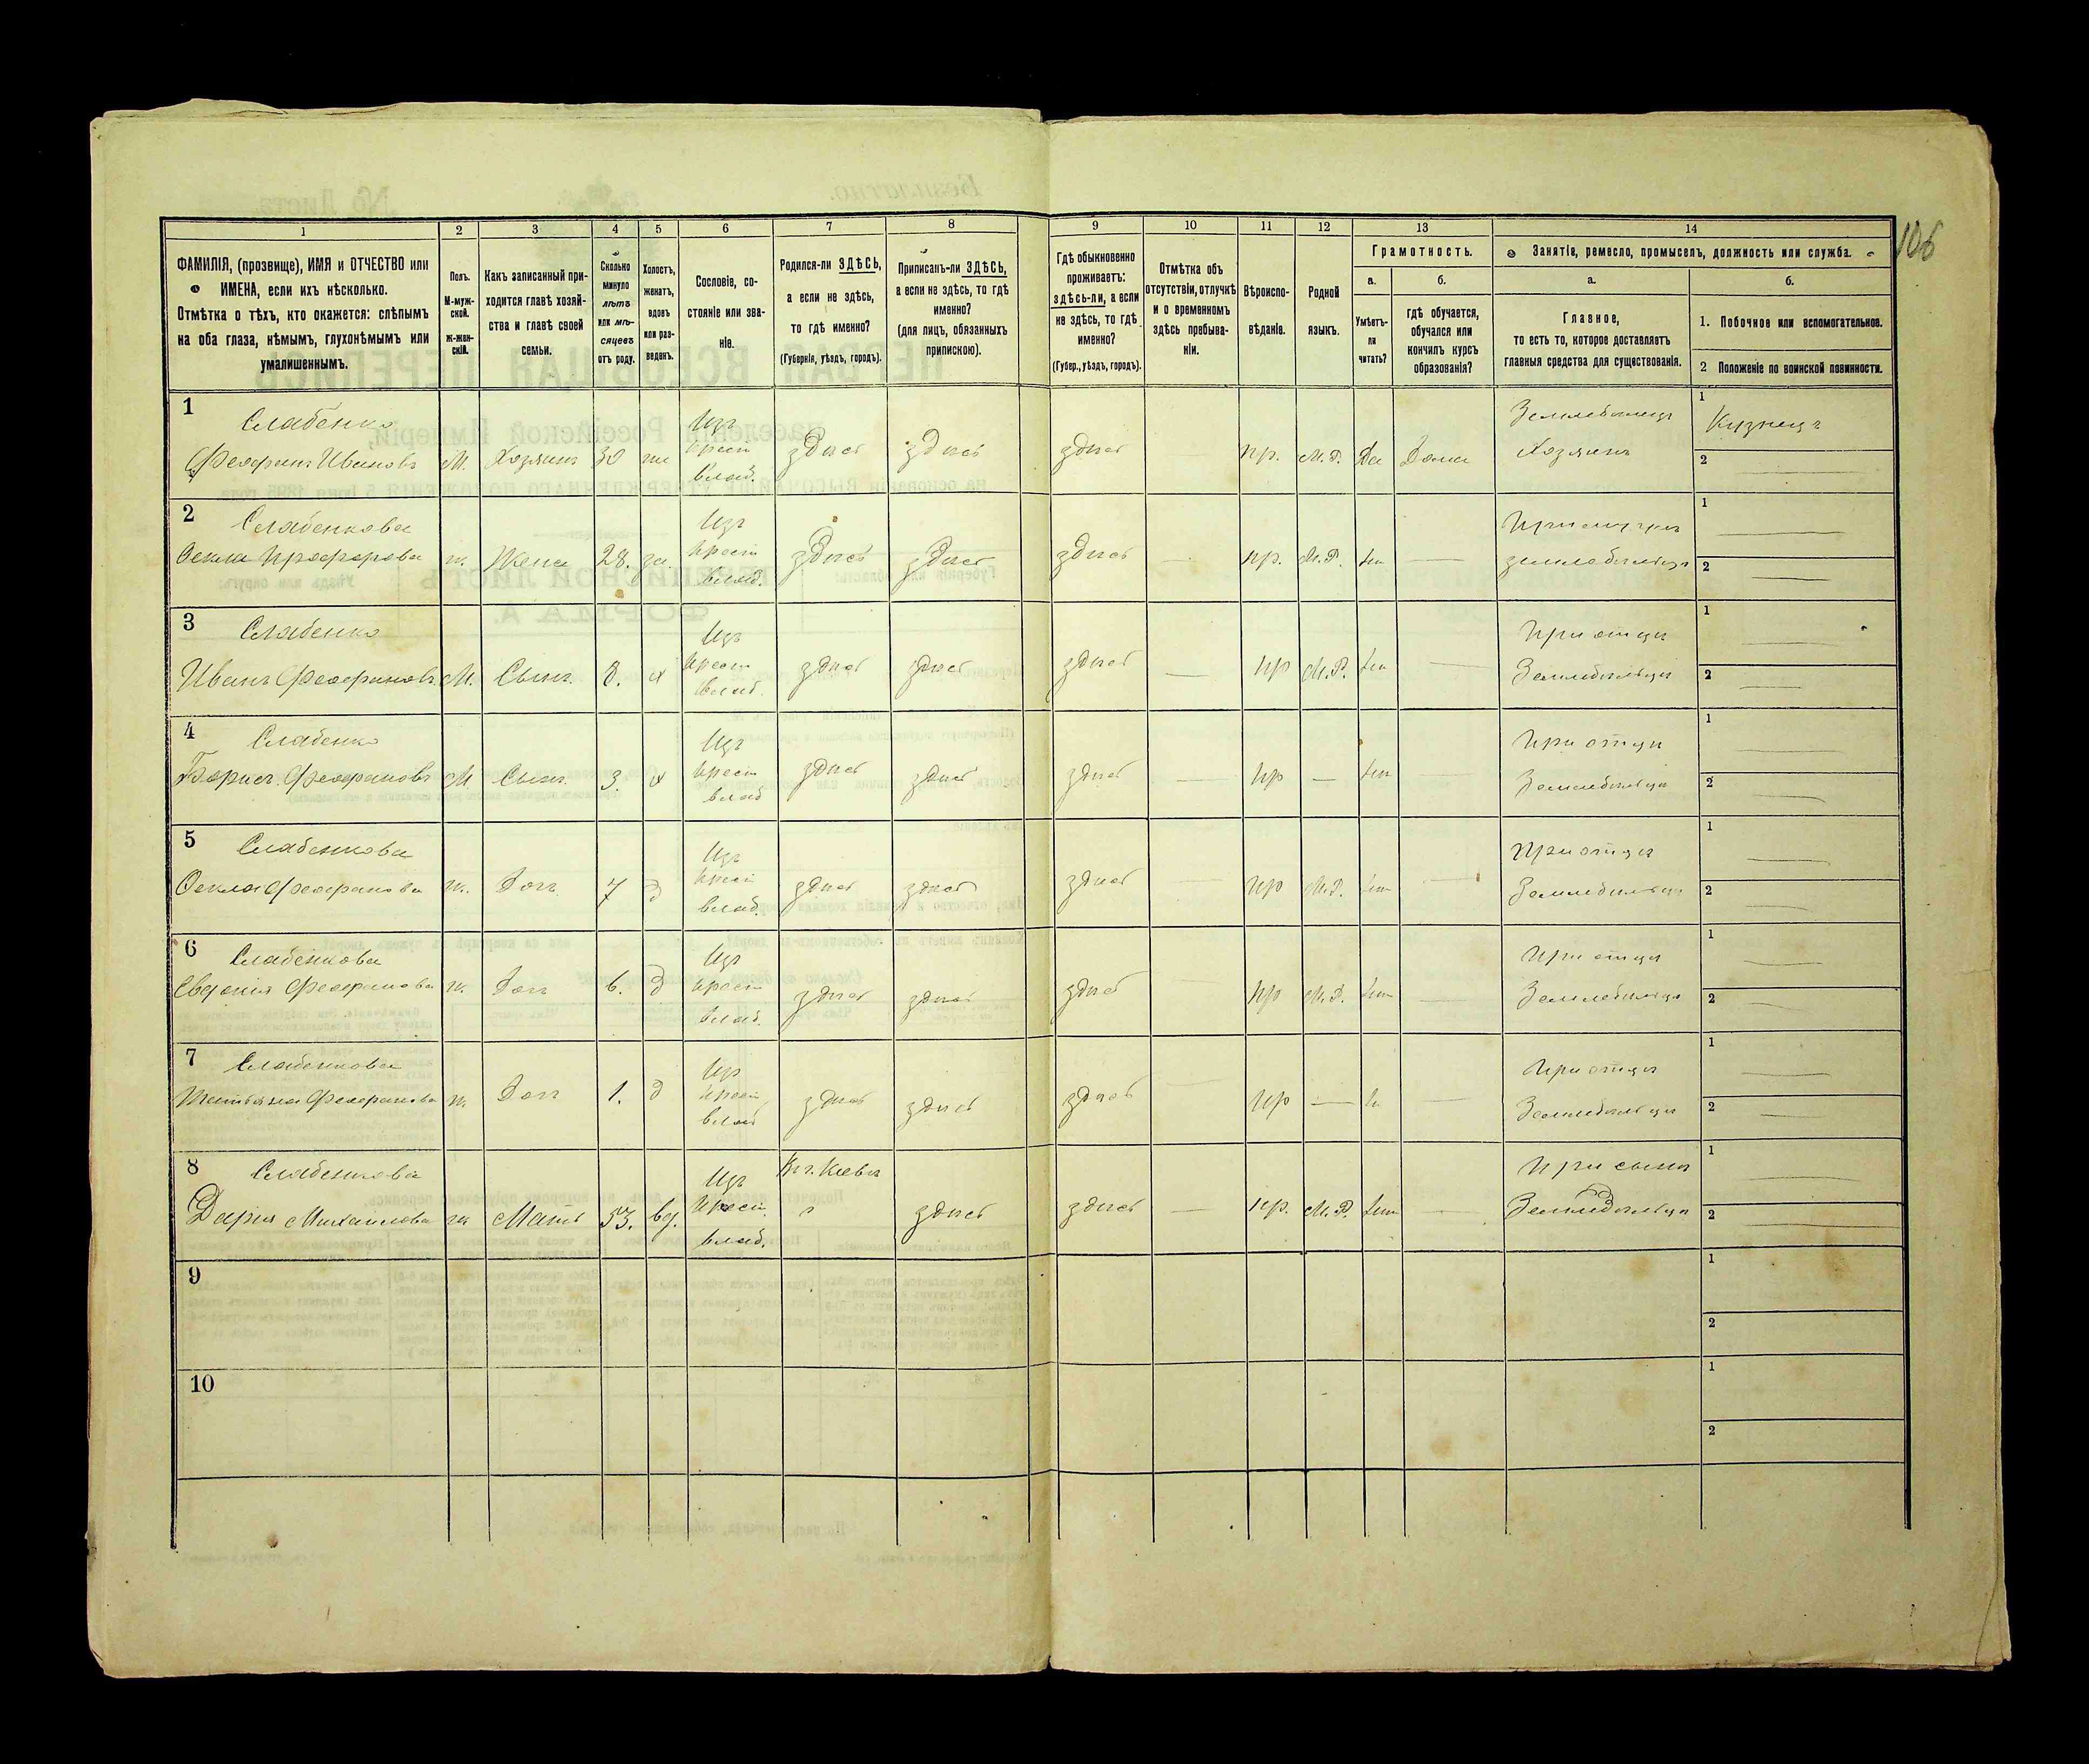 106
1 2 3 4 5 6 7 8 9 10 11 12 13 14
ФАМИЛІЯ, (прозвище), ИМЯ и ОТЧЕСТВО или
ИМЕНА, если ихъ нѣсколько.
Отмѣтка о тѣхъ, кто окажется: слѣпымъ
на оба глаза, нѣмымъ, глухонѣмымъ или
умалишеннымъ.
Полъ.
М-муж-
ской.
Ж-жен-
скій.
Какъ записанный при-
ходится главѣ хозяй-
ства и главѣ своей
семьи.
Сколько
минуло
лѣтъ
или мѣ-
сяцевъ
отъ роду.
Холостъ,
женатъ,
вдовъ
или раз-
веденъ.
Сословіе, со-
стояніе или зва-
ніе.
Родился-ли ЗДѢСЬ,
а если не здѣсь,
то гдѣ именно?
(Губернія, уѣздъ, городъ).
Приписанъ-ли ЗДѢСЬ,
а если не здѣсь, то гдѣ
именно?
(для лицъ, обязанныхъ
припискою).
Гдѣ обыкновенно
проживаетъ:
здѣсь-ли, а если
не здѣсь, то гдѣ
именно?
(Губер., уѣздъ, городъ).
Отмѣтка объ
отсутствіи, отлучкѣ
и о временномъ
здѣсь пребыва-
ніи.
Вѣроиспо-
вѣданіе.
Родной
языкъ.
Грамотность.
а.
Умѣетъ-
ли
читать?
б.
гдѣ обучается,
обучался или
кончилъ курсъ
образованія?
Занятіе, ремесло, промыселъ, должность или служба.
а.
Главное,
то есть то, которое доставляетъ
главныя средства для существованія.
б.
1. Побочное или вспомогательное.
2 Положеніе по воинской повинности.
1
Слабенко
Феофанъ Ивановъ М. Хозяинъ 30 же
Изъ
крест
влад.
здѣсь здѣсь здѣсь пр. М.Р. Да Дома
Земледѣлецъ
Хозяинъ
1 Кузнецъ
2
2
Слабенкова
Ѳекла Прохорова ж. Жена 28. за
Изъ
крест
влад.
здѣсь здѣсь здѣсь — пр. М.Р. —
земледѣльцѣ
1
2
3
Слабенко
Иванъ Феофановъ М. Сынъ. 8. х
Изъ
крест
влад.
здѣсь здѣсь здѣсь — пр М.Р. —
При отцѣ
Земледѣльцѣ
1
2
4
Слабенко
Борисъ Феофановъ М. Сынъ 3. х
Изъ
крест
влад
здѣсь здѣсь здѣсь — пр —
При отцѣ
Земледѣльцѣ
1
2
5
Слабенкова
Ѳекла Феофанова ж. Доч 7 д
Изъ
крест
влад.
здѣсь здѣсь здѣсь — пр М.Р. —
При отцѣ
Земледѣльцѣ
1
2
6
Слабенкова
Евдокія Феофанова ж. Доч 6. д
Изъ
крест
влад.
здѣсь здѣсь здѣсь — пр М.Р. —
При отцѣ
Земледѣльцѣ
1
2
7
Слабенкова
Татьяна Феофанова ж. Доч 1. д
Из
крест
влад
здѣсь здѣсь здѣсь пр — —
При отцѣ
Земледѣльцѣ
1
2
8
Слабенкова
Дарія Михайлова ж Мать 53. вд.
Изъ
Крест.
влад.
здѣсь здѣсь — пр. М.Р. —
При сынѣ
Земледѣльцѣ
1
2
9
1
2
10
1
2